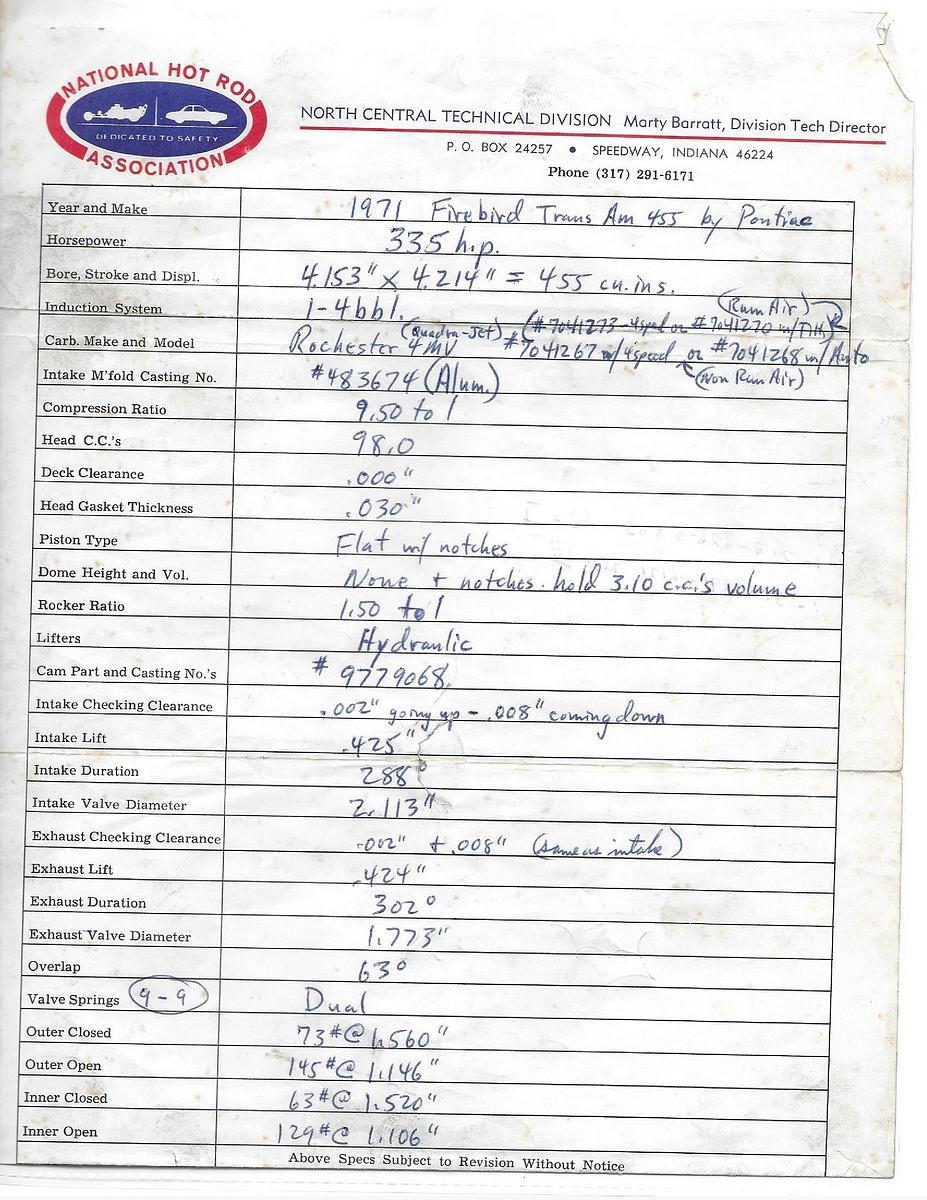 NATIONAL HOT ROD
DEDICATED TO SAFETY
ASSOCIATION
NORTH CENTRAL TECHNICAL DIVISION Marty Barratt, Division Tech Director
P. O. BOX 24257 • SPEEDWAY, INDIANA 46224
Phone (317) 291-6171
Year and Make 1971 Firebird Trans Am 455 by Pontiac
Horsepower 335 h.p.
Bore, Stroke and Displ. 4.153" x 4.214" = 455 cu.ins.
Induction System 1-4bbl. (Ram Air)
(Quadra-Jet) (#7041273-4spd or #7041270 w/T.H.)
Carb. Make and Model Rochester 4MV #7041267 w/4speed or #7041268 w/Auto
(Non Ram Air)
Intake M'fold Casting No. #483674 (Alum.)
Compression Ratio 9.50 to 1
Head C.C.'s 98.0
Deck Clearance .000"
Head Gasket Thickness .030"
Piston Type Flat w/ notches
Dome Height and Vol. None + notches hold 3.10 c.c.'s volume
Rocker Ratio 1.50 to 1
Lifters Hydraulic
Cam Part and Casting No.'s # 9779068
Intake Checking Clearance .002" going up - .008" coming down
Intake Lift .425"
Intake Duration 288°
Intake Valve Diameter 2.113"
Exhaust Checking Clearance .002" + .008" (same as intake)
Exhaust Lift .424"
Exhaust Duration 302°
Exhaust Valve Diameter 1.773"
Overlap 63°
Valve Springs 9-9 Dual
Outer Closed 73#@ 1.560"
Outer Open 145#@ 1.146"
Inner Closed 63#@ 1.520"
Inner Open 129#@ 1.106"
Above Specs Subject to Revision Without Notice